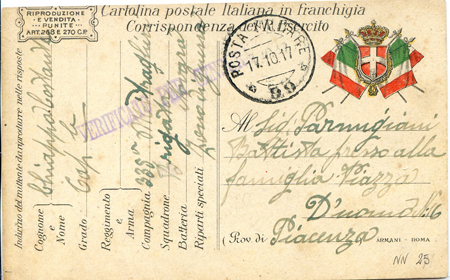 RIPRODUZIONE
E VENDITA
PUNITE
ART. 258 E 270 C.P.
Cartolina postale Italiana in franchigia
Corrispondenza del R. Esercito
POSTA MILITARE
17.10.17
59
VERIFICATO PER
Indirizzo del mittente da riprodurre nelle risposte
Cognome e Nome
Grado
Reggimento e Arma
Compagnia 333ª
Squadrone
Batteria
Riparti speciali
Brigata
Al Sig. Parmigiani
Battista presso alla
famiglia Piazza
Duomo N. 16
(Prov. di Piacenza
ARMANI - ROMA
NN 25